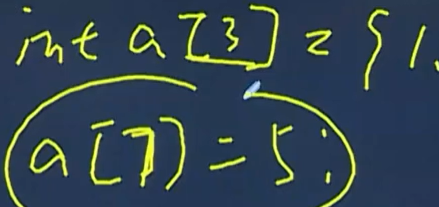 int a[3] = {1,
a[7] = 5;